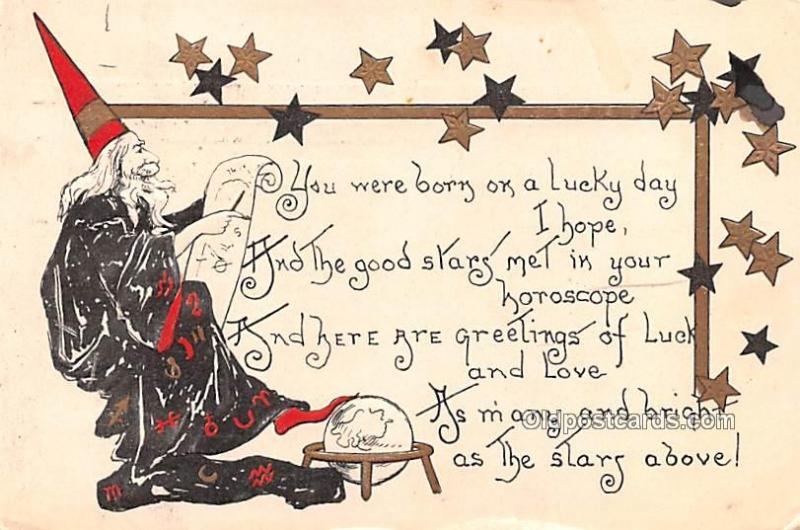 You were born on a lucky day
I hope,
And the good stars met in your
horoscope
And here are greetings of luck
and love
As many and bright
Oldpostcards.com
as the stars above!